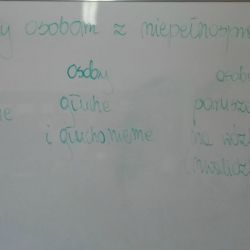 y osobom z niepełnospr
osoby
głuche
i głuchonieme
osob
porusza
na wóz